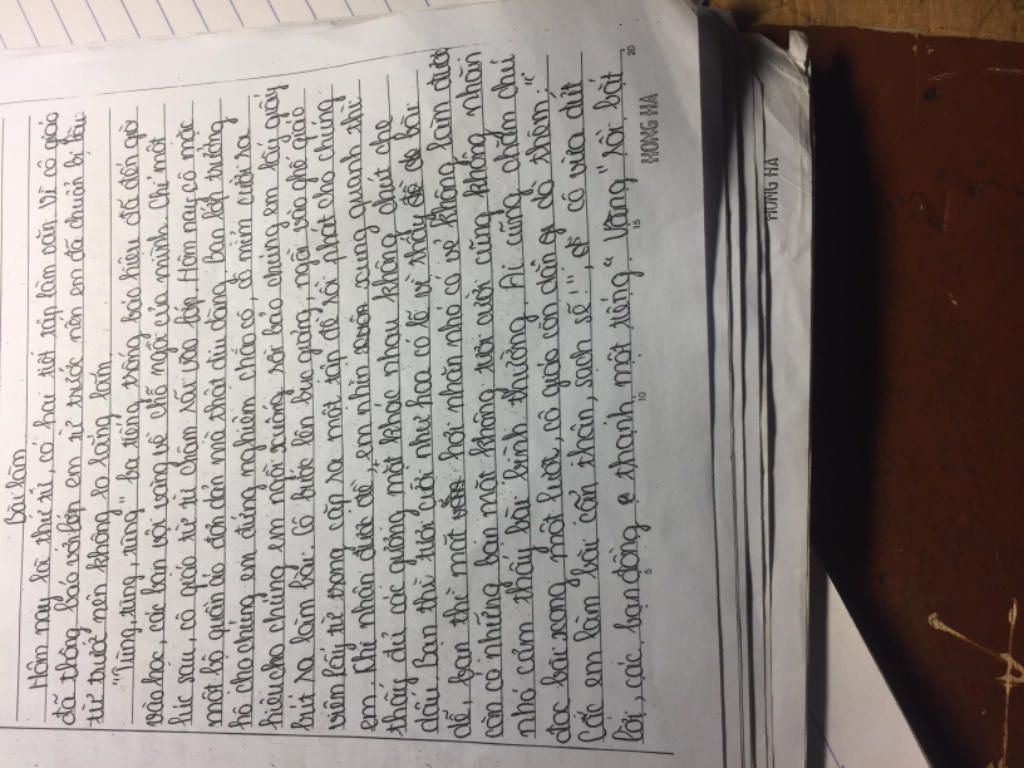 Bài làm
Hôm nay là thứ tư, có hai tiết tập làm văn vì cô giáo
đã thông báo với lớp em từ trước nên em đã chuẩn bị bài
từ trước nên không lo lắng lắm.
"Tùng, tùng, tùng" ba tiếng trống báo hiệu đã đến giờ
vào học, các bạn vội vàng về chỗ ngồi của mình. Chỉ một
lúc sau, cô giáo từ từ chậm rãi vào lớp. Hôm nay, cô mặc
một bộ quần áo đơn giản mà thật dịu dàng. Bạn lớp trưởng
hô cho chúng em đứng nghiêm chào cô, cô mỉm cười ra
hiệu cho chúng em ngồi xuống, rồi bảo chúng em lấy giấy
bút ra làm bài. Cô bước lên bục giảng, ngồi vào ghế giáo
viên lấy từ trong cặp ra một tập đề rồi phát cho chúng
em. Khi nhận được đề, em nhìn xung quanh thì
thấy đủ các gương mặt khác nhau không dứt che
dấu. Bạn thì tươi cười như hoa có lẽ vì thấy đề bài
dễ, bạn thì mặt hơi nhăn nhó có vẻ không làm được
còn có những bạn mặt không tươi cười cũng không nhăn
nhó cảm thấy bài bình thường. Ai cũng chăm chú
đọc bài xong một lượt, cô giáo ôn tồn dặn dò thêm:"
Các em làm bài cẩn thận, sạch sẽ!", cô vừa dứt
lời, các bạn đồng thanh một tiếng "Vâng" rồi bắt
5
10
15
20
HONG HA
HONG HA